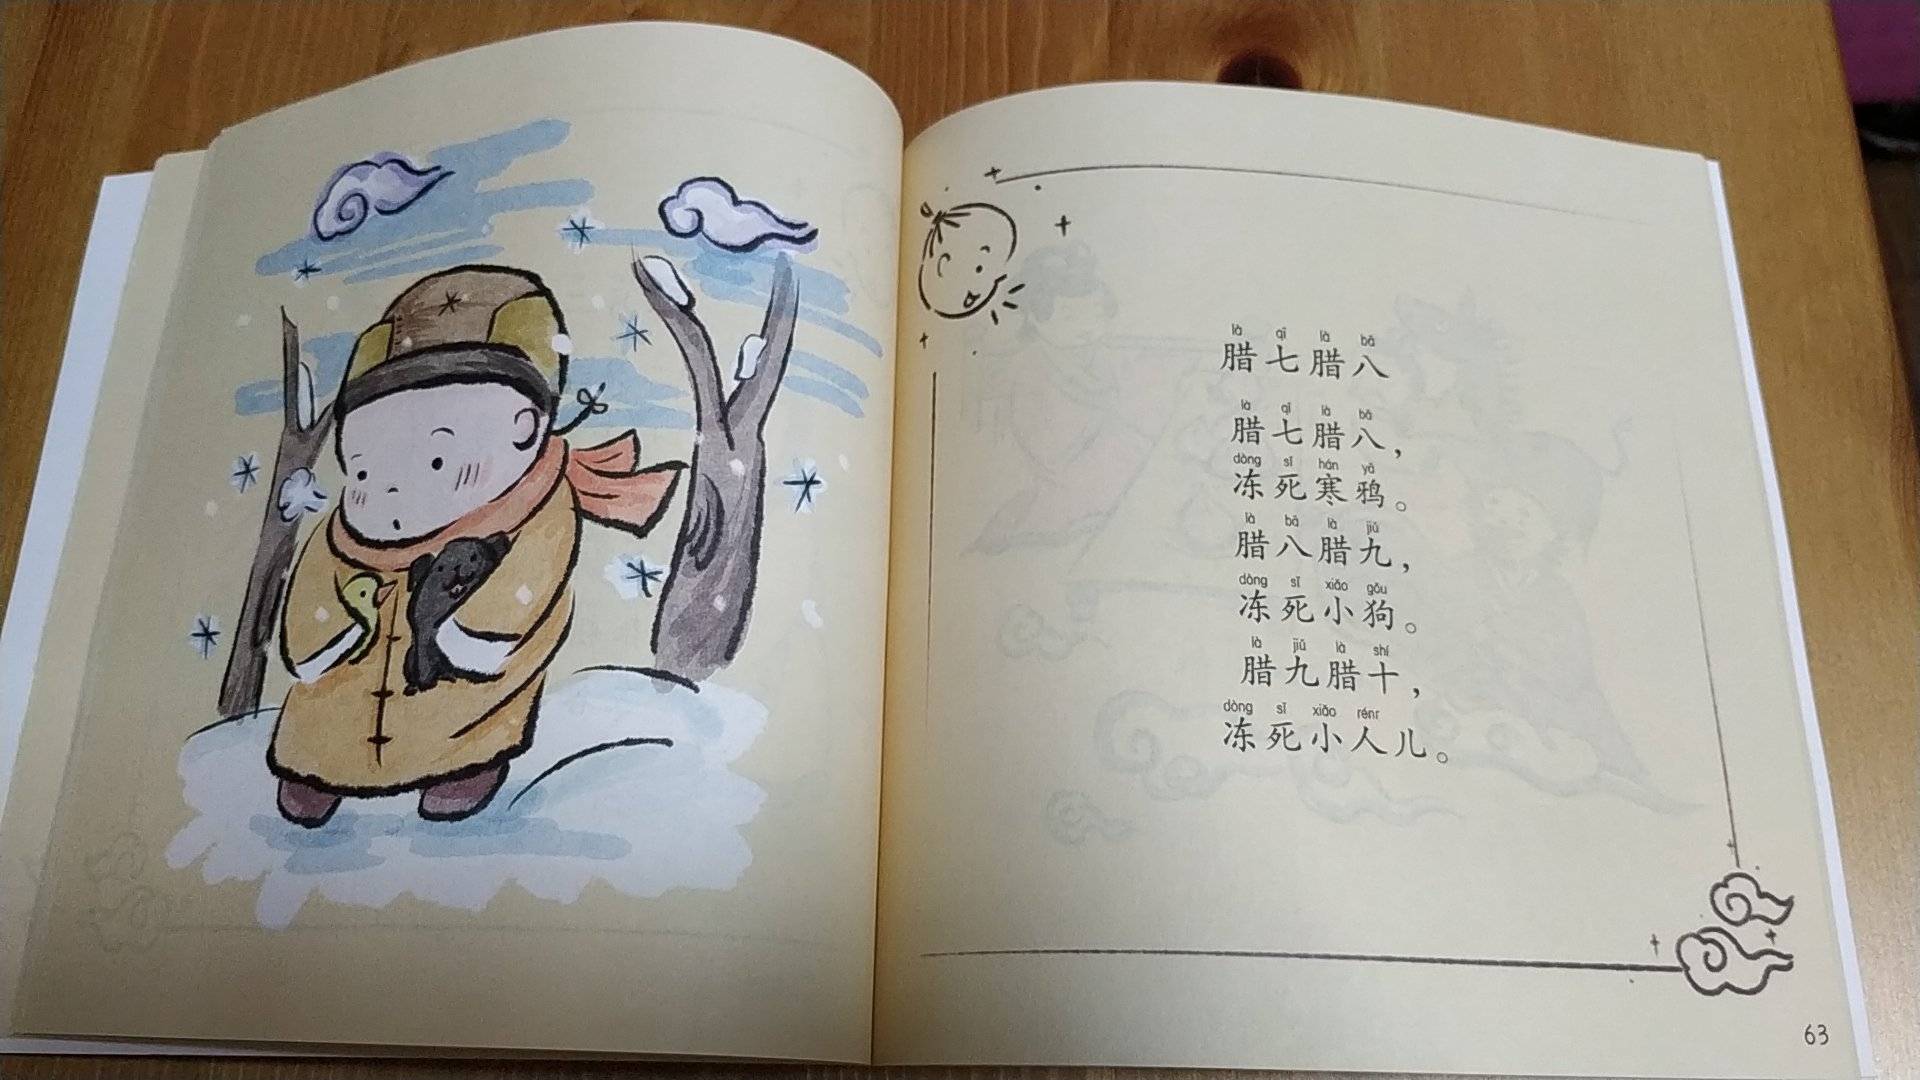 là qī là bā
腊七腊八
là qī là bā
腊七腊八，
dòng sǐ hán yā
冻死寒鸦。
là bā là jiǔ
腊八腊九，
dòng sǐ xiǎo gǒu
冻死小狗。
là jiǔ là shí
腊九腊十，
dòng sǐ xiǎo rénr
冻死小人儿。
63